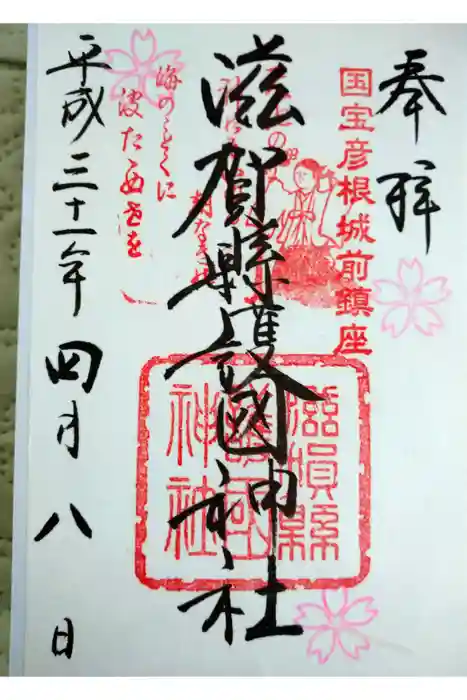 奉拝
国宝彦根城前鎮座
滋賀縣護國神社
滋賀縣
護國
神社
海のことくに
波たゝぬ世を
平成三十一年四月八日